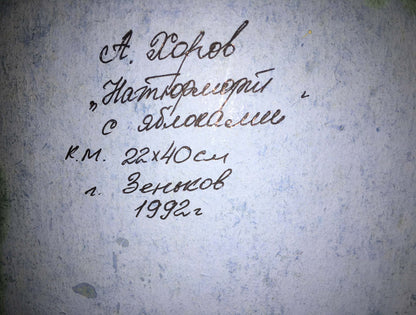 А. Хоров
„Натюрморт
с яблоками"
к.м. 22х40см
г. Зеньков
1992г